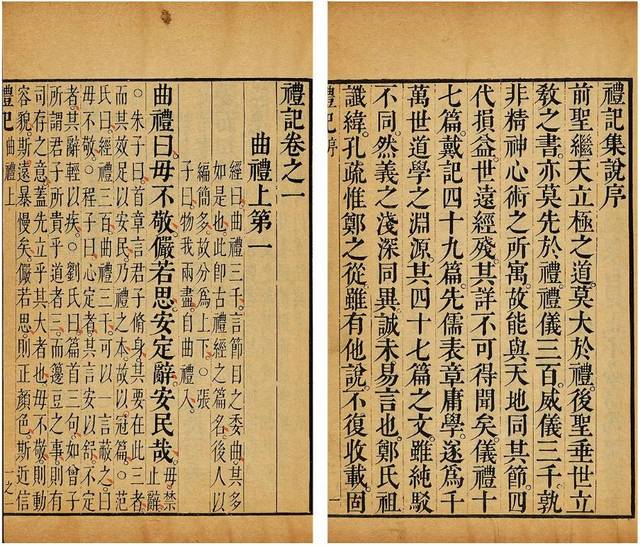 禮記集說序
前聖繼天立極之道。莫大於禮。後聖垂世立
教之書。亦莫先於禮。禮儀三百。威儀三千。孰
非精神心術之所寓。故能與天地同其節。四
代損益。世遠經殘。其詳不可得聞矣。儀禮十
七篇。戴記四十九篇。先儒表章庸學。遂爲千
萬世道學之淵源。其四十七篇之文。雖純駁
不同。然義之淺深同異。誠未易言也。鄭氏祖
讖緯。孔疏惟鄭之從。雖有他說。不復收載。固
禮記 序 一
禮記卷之一
曲禮上第一
經曰曲禮三千言節目之委曲其多
如是也此卽古禮經之篇名後人以
編簡多故分爲上下○張
子曰物我兩盡自曲禮入
曲禮曰毋不敬儼若思安定辭安民哉
毋禁
止辭
○朱子曰首章言君子修身其要在此三者
而其效足以安民乃禮之本故以冠篇○范
氏曰經禮三百曲禮三千可以一言蔽之曰
毋不敬○程子曰心定者其言安以舒不定
者其辭輕以疾○劉氏曰篇首三句如曾子
所謂君子所貴乎道者三而籩豆之事則有
司存之意蓋先立乎其大者也毋不敬則動
容貌斯遠暴慢矣儼若思則正顏色斯近信
禮記 曲禮上